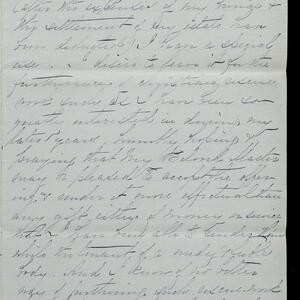 (after the expenses of my funeral &
the settlement of my estate have
been deducted) I have a special
use. I desire to leave it for the
furtherance of Christian science
work such as I have been so
greatly interested in during my
later years, humbly hoping &
praying that my Beloved Master
may be pleased to accept the offer-
ing, & render it more effectual than
any gift either of money or service
that I have been able to render Him
while the tenant of a
body. And I know of no better
way of furthering such